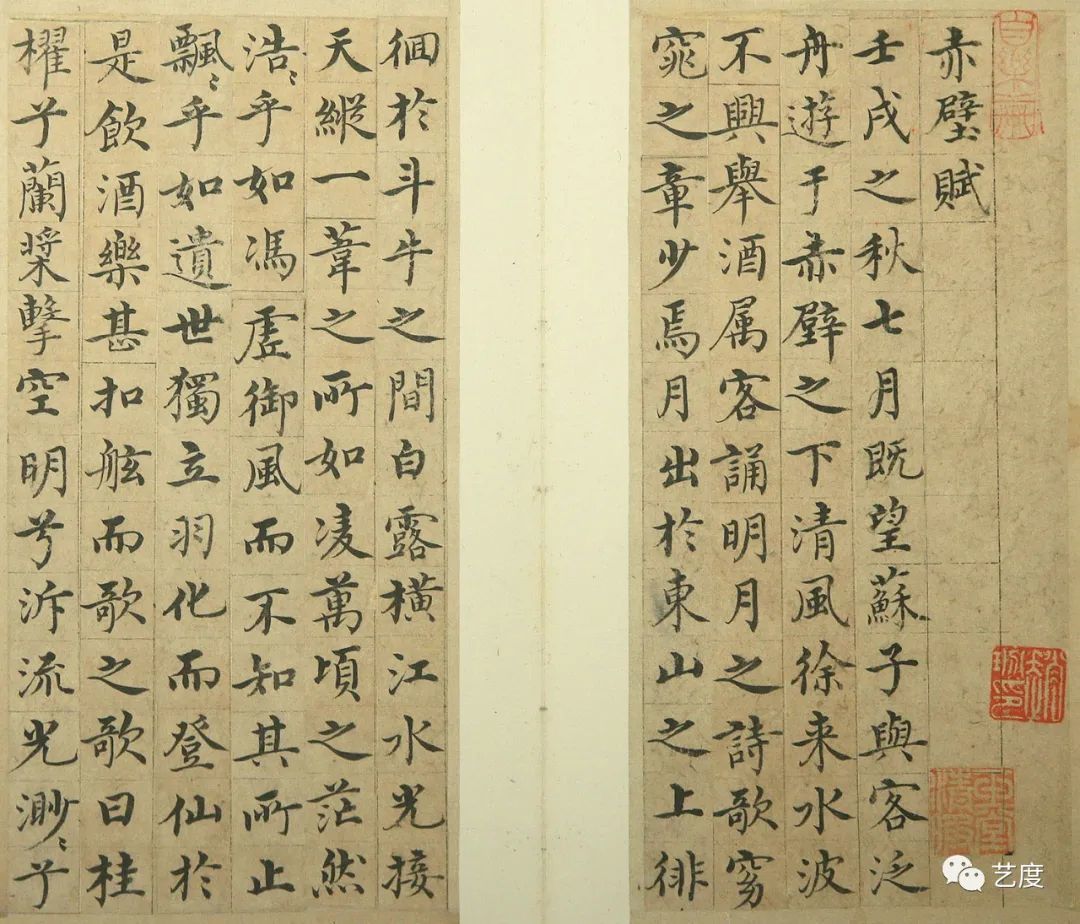 赤壁賦
壬戌之秋七月既望蘇子與客泛
舟遊于赤壁之下清風徐来水波
不興舉酒属客誦明月之詩歌窈
窕之章少焉月出於東山之上徘
徊於斗牛之間白露橫江水光接
天縱一葦之所如凌萬頃之茫然
浩〻乎如馮虛御風而不知其所止
飄〻乎如遺世獨立羽化而登仙於
是飲酒樂甚扣舷而歌之歌曰桂
櫂兮蘭槳擊空明兮泝流光渺〻兮
艺度